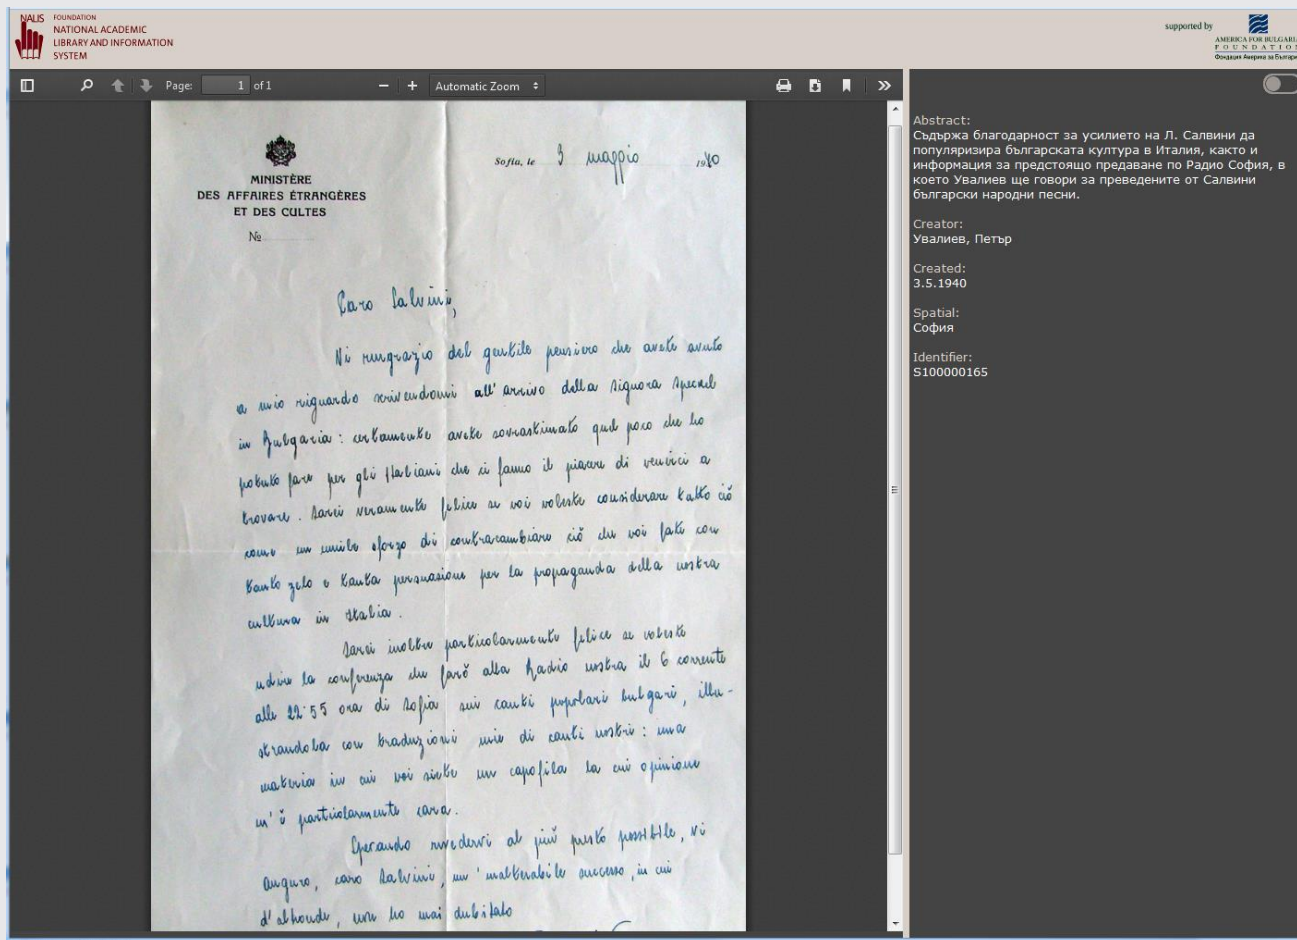 NALIS FOUNDATION
NATIONAL ACADEMIC
LIBRARY AND INFORMATION
SYSTEM
supported by
AMERICA FOR BULGARIA
FOUNDATION
Фондация Америка за България
Page: 1 of 1
Automatic Zoom
MINISTÈRE
DES AFFAIRES ÉTRANGÈRES
ET DES CULTES
№
Sofia, le 3 maggio 1940
Caro Salvini,
Vi ringrazio del gentile pensiero che avete avuto
a mio riguardo scrivendomi all'arrivo della signora
in Bulgaria: certamente avete sovrastimato quel poco che ho
potuto fare per gli Italiani che ci fanno il piacere di venirci a
trovare. Sarei veramente felice se voi voleste considerare tutto ciò
come un umile sforzo di contracambiare ciò che voi fate con
tanto zelo e tanta persuasione per la propaganda della nostra
cultura in Italia.
Sarei inoltre particolarmente felice se voleste
udire la conferenza che farò alla Radio nostra il 6 corrente
alle 22·55 ora di Sofia sui canti popolari bulgari, illu-
strandola con traduzioni mie di canti nostri: una
materia in cui voi siete un capofila la cui opinione
m'è particolarmente cara.
Sperando rivedervi al più presto possibile, Vi
auguro, caro Salvini, un'inalterabile successo, in cui
d'altronde, non ho mai dubitato
Abstract:
Съдържа благодарност за усилието на Л. Салвини да
популяризира българската култура в Италия, както и
информация за предстоящо предаване по Радио София, в
което Увалиев ще говори за преведените от Салвини
български народни песни.
Creator:
Увалиев, Петър
Created:
3.5.1940
Spatial:
София
Identifier:
S100000165